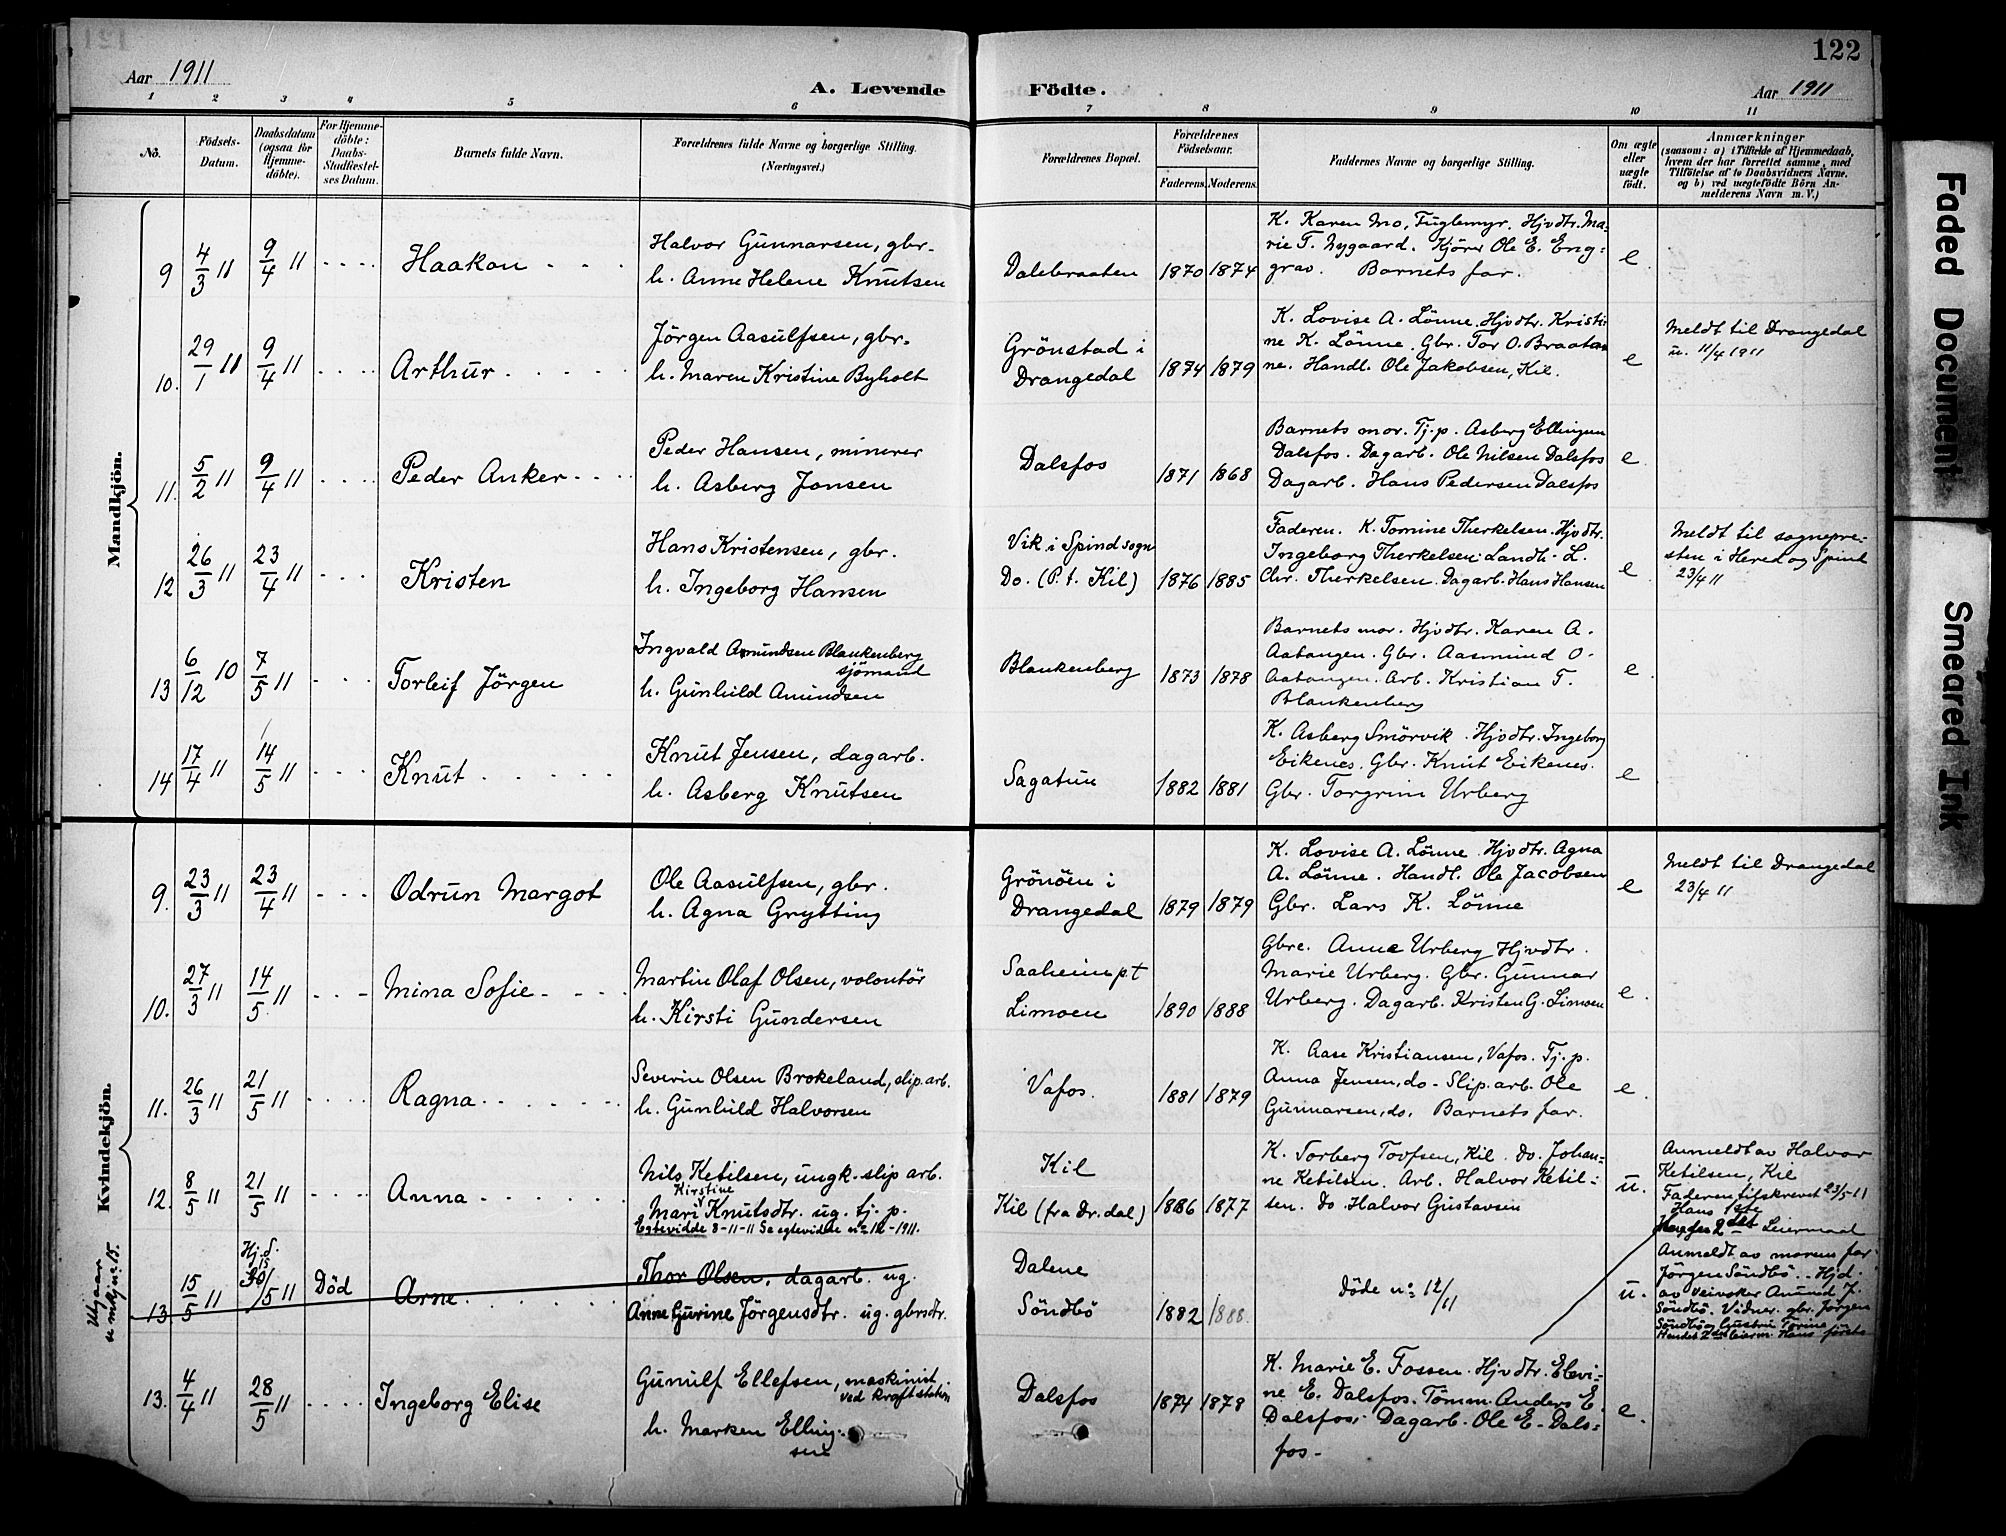 122
Aar 1911
A. Levende Födte.
Aar 1911
1 2 3 4 5 6 7 8 9 10 11
No.
Födsels-Datum.
Daabsdatum (ogsaa for Hjemme-döbte).
For Hjemme-döbte: Daabs-Stadfæstel-ses Datum.
Barnets fulde Navn.
Forældrenes fulde Navne og borgerlige Stilling. (Næringsvei.)
Forældrenes Bopæl.
Forældrenes Födselsaar.
Faderens. Moderens.
Faddernes Navne og borgerlige Stilling.
Om ægte eller uægte födt.
Anmærkninger
(saasom: a) i Tilfælde af Hjemmedaab, hvem der har forrettet samme, med Tilföielse af to Daabsvidners Navne, og b) ved uægtefödte Börn An-melderens Navn m. V.)
Mandkjön.
9 4/3 11 9/4 11 Haakon
Halvor Gunnarsen, gbr.
h. Anne Helene Knutsen
Dalebraaten 1870 1874
K. Karen Mo, Fuglemyr. Hjvdtr. Ma-
rie T. Nygaard. Kjörer Ole E. Eng-
grav. Barnets far.
e.
10. 29/1 11 9/4 11 Arthur
Jörgen Aasulfsen, gbr.
h. Maren Kristine Byholt
Grönstad i
Drangedal 1874 1879
K. Lovise A. Lönne. Hjvdtr. Kristi-
ne K. Lönne. Gbr. Tor O. Braata-
ne. Handl. Ole Jakobsen, Kil.
e
Meldt til Drangedal
u. 11/4 1911
11. 5/2 11 9/4 11 Peder Anker
Peder Hansen, minerer
h. Asberg Jonsen
Dalsfos 1871 1868
Barnets mor. Tj.p. Asberg Ellingsen
Dalsfos. Dagarb. Ole Nilsen Dalsfos
Dagarb. Hans Pedersen Dalsfos
e
12 26/3 11 23/4 11 Kristen
Hans Kristensen, gbr.
h. Ingeborg Hansen
Vik i Spind sogn
Do. (P. t. Kil) 1876 1885
Faderen. K. Tomine Therkelsen. Hjvdtr.
Ingeborg Therkelsen. Landh. L.
Chr. Therkelsen. Dagarb. Hans Hansen
e
Meldt til sognepre-
sten i Hered og Spind
23/4 11
13 6/12 10 7/5 11 Torleif Jörgen
Ingvald Amundsen Blankenberg
sjömand
h. Gunhild Amundsen
Blankenberg 1873 1878
Barnets mor. Hjvdtr. Karen A.
Aatangen. Gbr. Aasmund O.
Aatangen. Arb. Kristian T.
Blankenberg
e
14 17/4 11 14/5 11 Knut
Knut Jensen, dagarb.
h. Asberg Knutsen
Sagatun 1882 1881
K. Asberg Smörvik. Hjvdtr. Ingeborg
Eikenes. Gbr. Knut Eikenes.
Gbr. Torgrim Urberg
e
Kvindekjön.
9. 23/3 11 23/4 11 Odrun Margot
Ole Aasulfsen, gbr.
h. Agna Grytting
Grönöen i
Drangedal 1879 1879
K. Lovise A. Lönne. Hjvdtr. Agna
A. Lönne. Handl. Ole Jacobsen
Gbr. Lars K. Lönne
e
Meldt til Drangedal
23/4 11
10. 27/3 11 14/5 11 Mina Sofie
Martin Olaf Olsen, volontör
h. Kirsti Gundersen
Saaheim pt
Limoen 1890 1888
Gbre. Anne Urberg Hjvdtr.
Marie Urberg. Gbr. Gunnar
Urberg. Dagarb. Kristen G. Limoen
e.
11. 26/3 11 21/5 11 Ragna
Severin Olsen Brokeland, slip.arb.
h. Gunhild Halvorsen
Vafos. 1881 1879
K. Aase Kristiansen, Vafos. Tj.p.
Anna Jensen, do. Slip.arb. Ole
Gunnarsen, do. Barnets far.
e.
12. 8/5 11 21/5 11 Anna
Nils Ketilsen, ungk. slip arb.
Kirstine
Mari Knutsdtr. ug. tj. p.
Egtevidde 3-11-11 Se egtevidde nr 12-1911.
Kil
Kil (fra Dr.dal) 1886 1877
K. Torberg Tovfsen, Kil. Do. Johan-
ne Ketilsen. Arb. Halvor Ketil-
sen. Do Halvor Gustavsen
u.
Anmeldt av Halvor
Ketilsen, Kil
Faderen tilskrevet 23/5-11
Hans 1ste
2det Leiermaal
Utgaar
se mkj. nr. 15.
13 15/5 11 Hj. d. 15/5 11 Död Arne
Thor Olsen, dagarb. ug.
Anne Gurine Jörgensdtr. ug. gbrsdtr.
Dalene
Söndbö 1882 1888.
Döde nr 12/11
u.
Anmeldt av morens far
Jörgen Söndbö. Hjd.
av veivokter Amund J.
Söndbö. Vidner. gbr. Jörgen
Söndbö og hustru Torine
Hendes 2det leierm. Hans förste
13. 4/4 11 28/5 11 Ingeborg Elise
Gunulf Ellefsen, maskinist
ved kraftstation
h. Marken Elling-
sen
Dalsfos 1874 1878
K. Marie E. Fossen. Hjvdtr. Elevi-
ne E. Dalsfos. Tömm. Anders E.
Dalsfos. Dagarb. Ole E. Dals-
fos.
e.
Faded Document
Smeared Ink